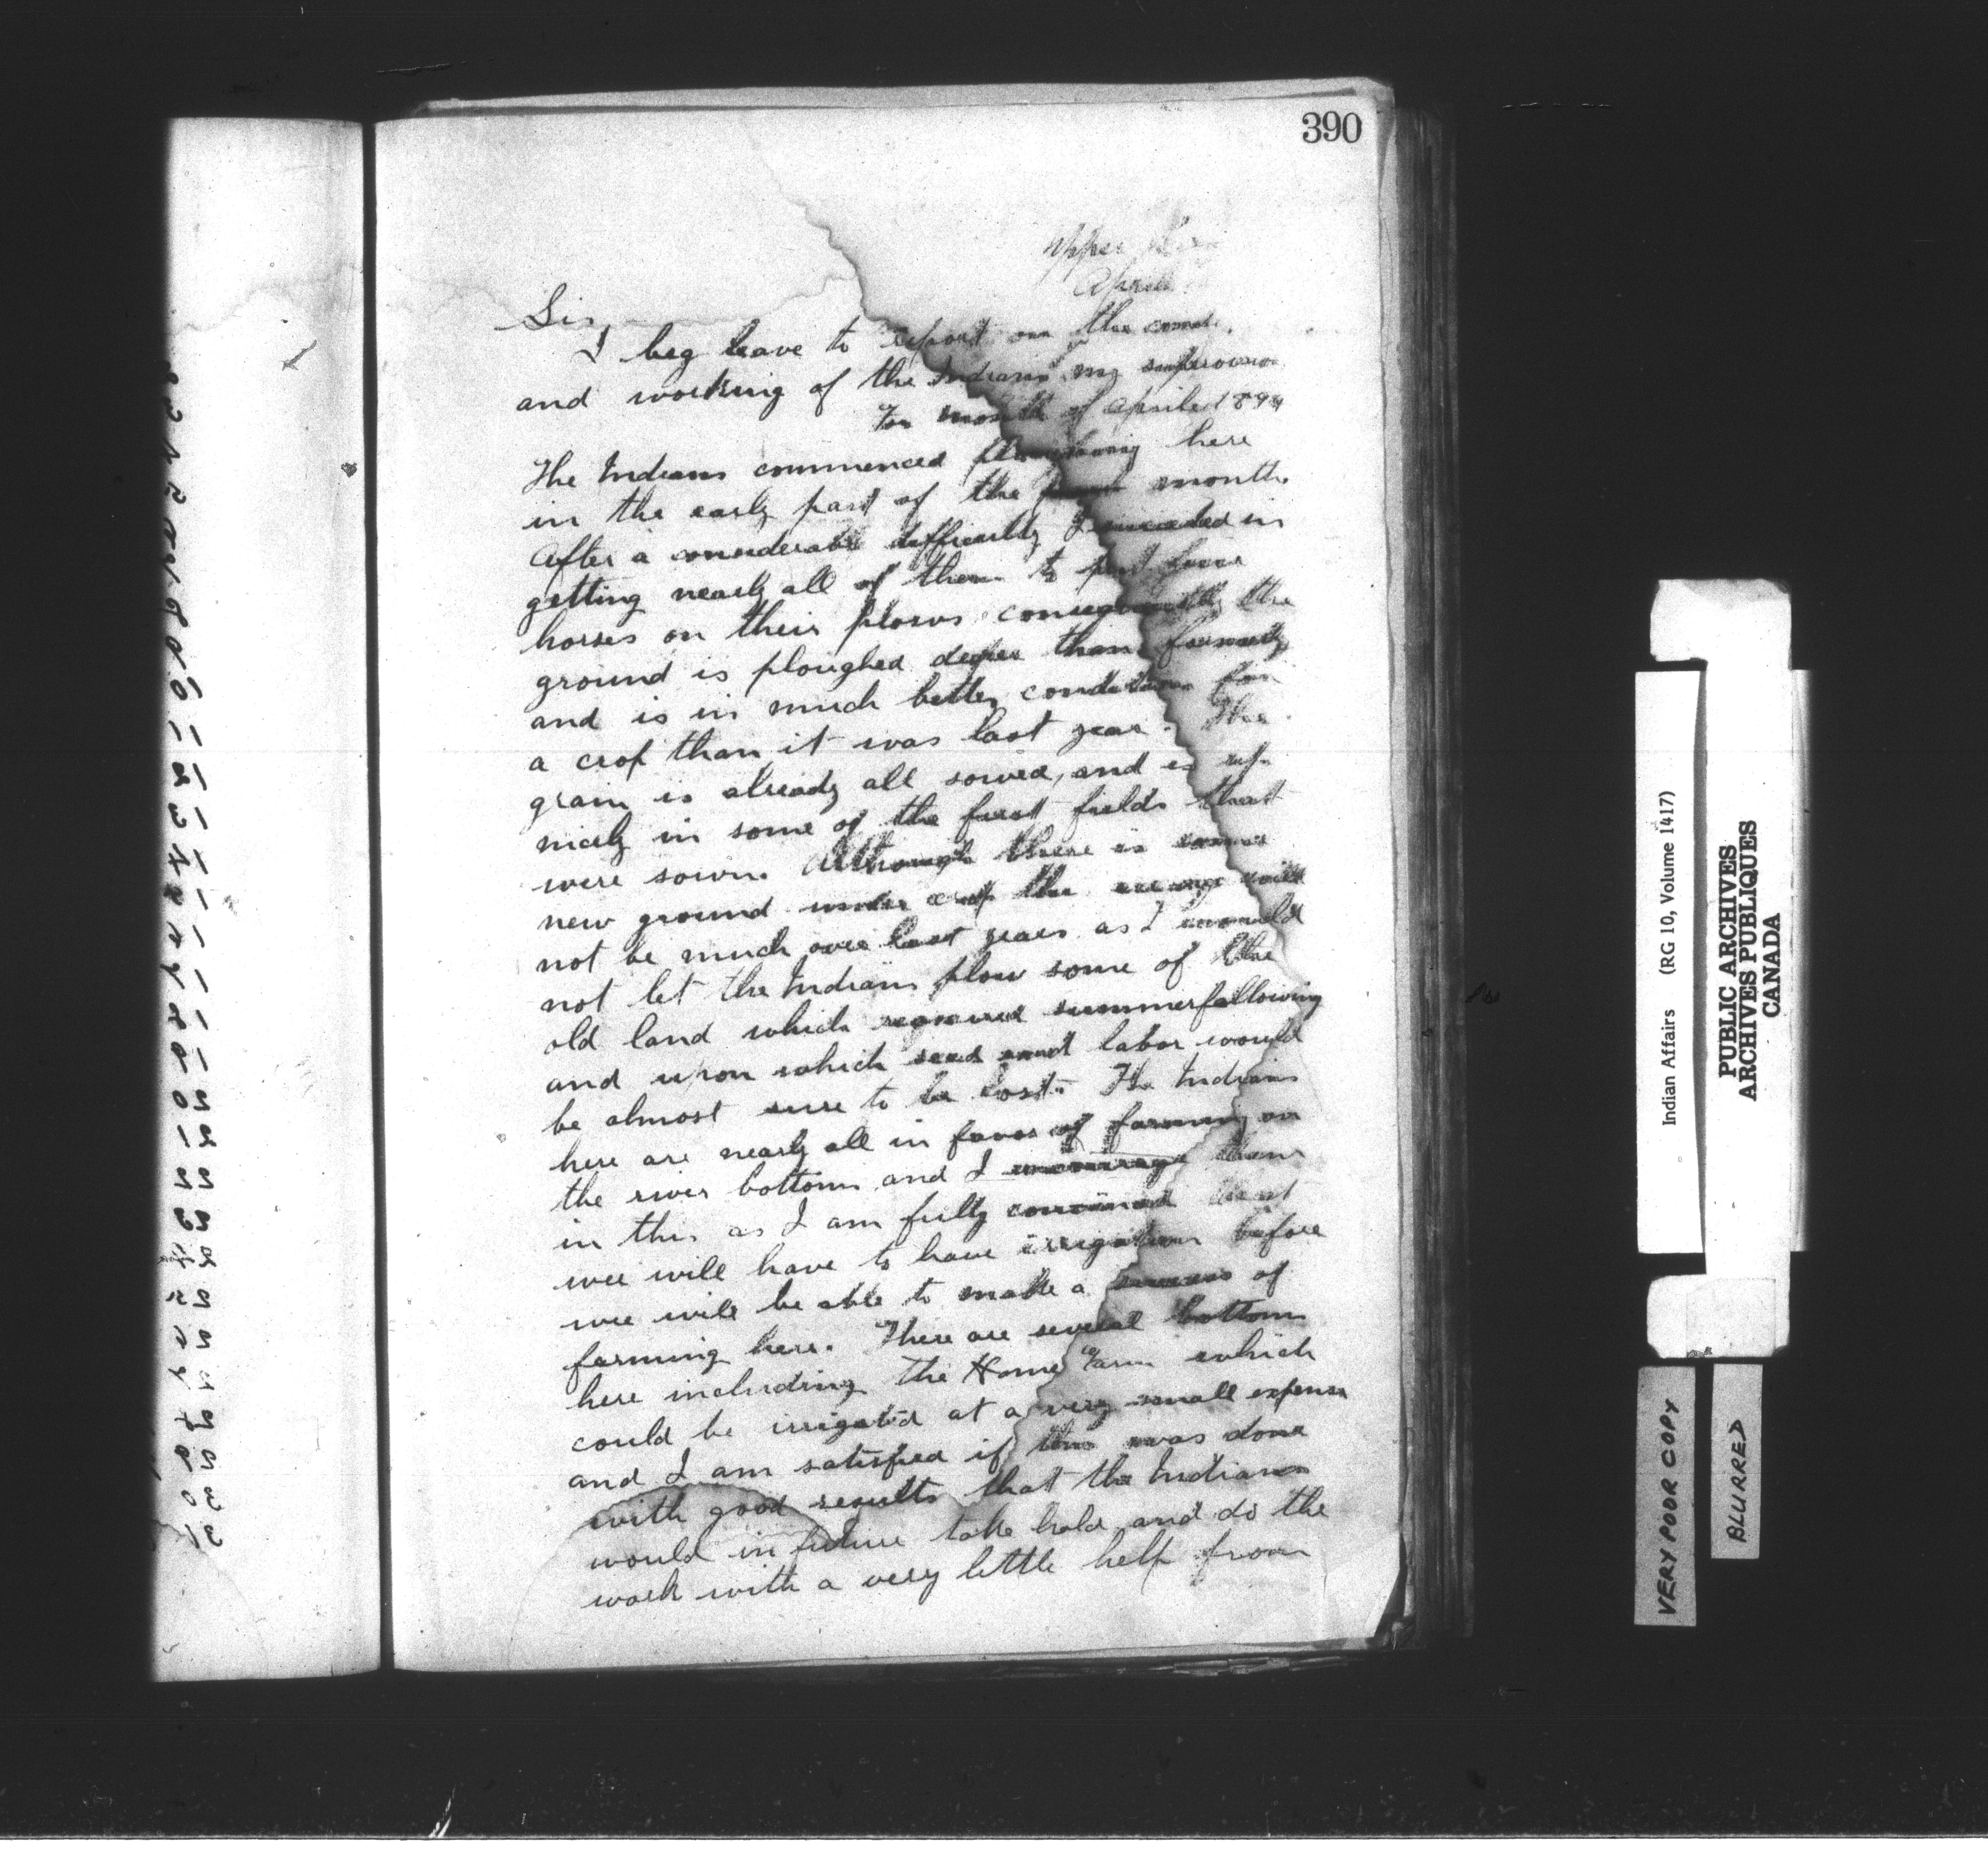 390
Upper
April
Sir
I beg leave to report on the
and working of the Indians my
For month of April 189
The Indians commenced ploughing here
in the early part of the month.
After a considerable difficulty I succeeded in
getting nearly all of them to put four
horses on their plows consequently the
ground is ploughed deeper than formerly
and is in much better condition for
a crop than it was last year. The
grain is already all sowed, and is up
nicely in some of the first fields that
were sown. Although there is some
new ground under crop the will
not be much over last years as I would
not let the Indians plow some of the
old land which required summerfallowing
and upon which seed and labor would
be almost sure to be lost. The Indians
here are nearly all in favor of farming on
the river bottoms and I encourage them
in this as I am fully convinced that
wee will have to have irrigation before
wee will be able to make a success of
farming here. There are several bottoms
here including the Home Farm which
could be irrigated at a very small expense
and I am satisfied if this was done
with good results that the Indians
would in future take hold and do the
work with a very little help from
Indian Affairs (RG 10, Volume 1417)
PUBLIC ARCHIVES
ARCHIVES PUBLIQUES
CANADA
VERY POOR COPY
BLURRED